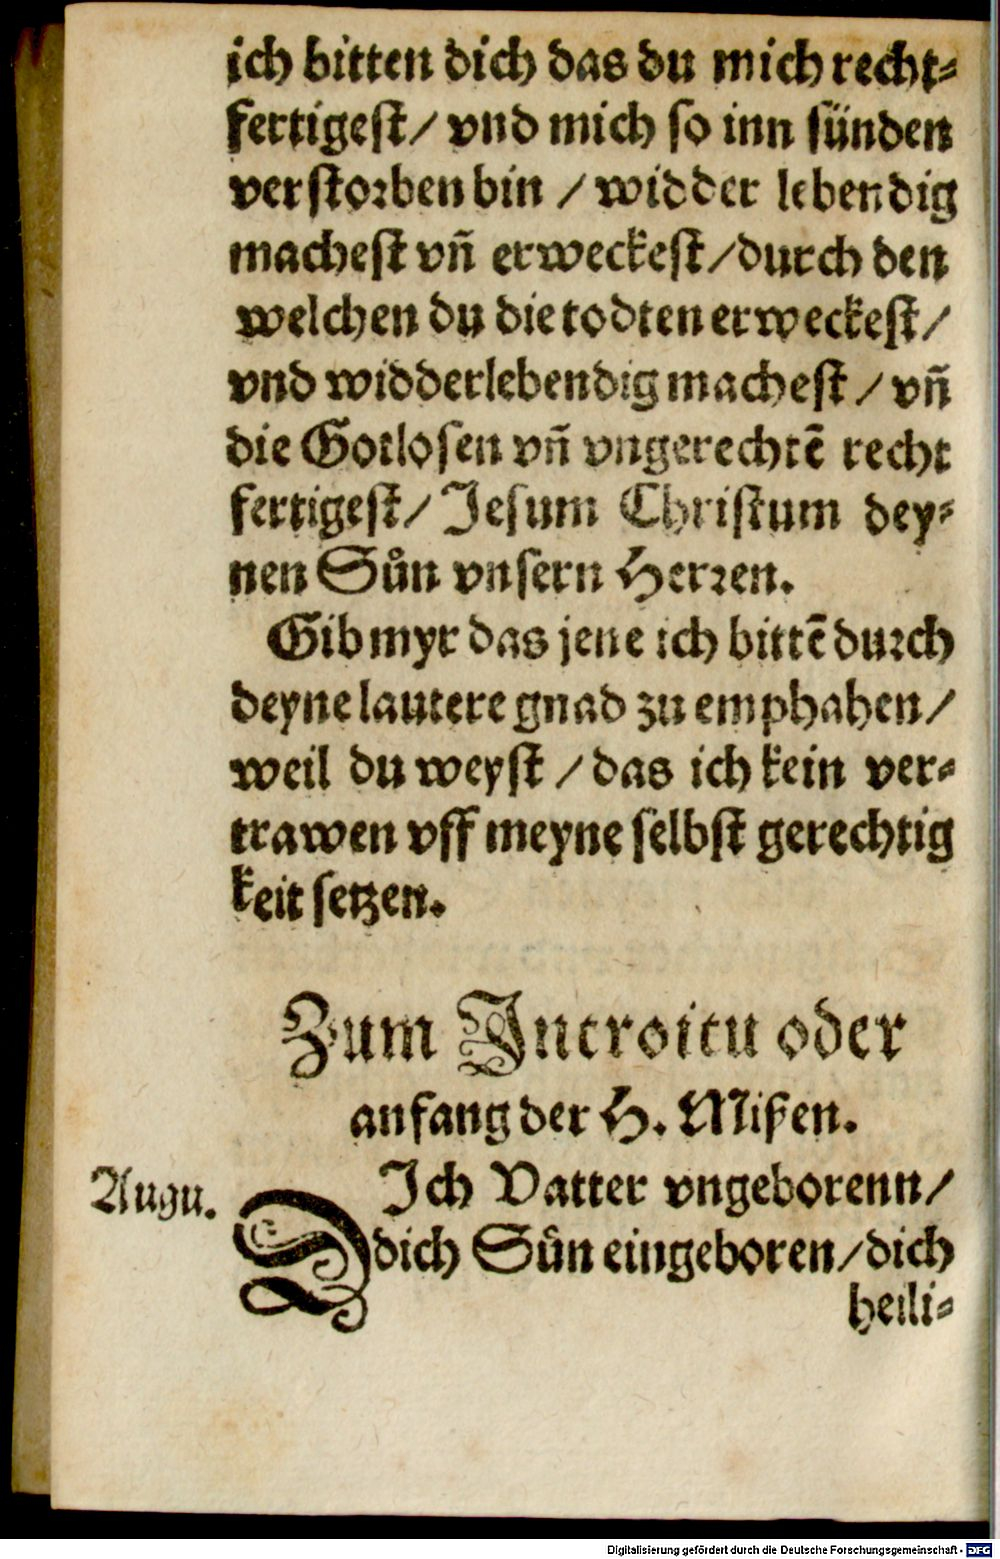 ich bitten dich das du mich recht⸗
fertigest/ vnd mich so inn sünden
verstorben bin / widder lebendig
machest vn̄ erweckest/durch den
welchen du die todten erweckest/
vnd widderlebendig machest / vn̄
die Gotlosen vn̄ vngerechtē recht
fertigest/ Jesum Christum dey⸗
nen Sůn vnsern Herren.
Gib myr das jene ich bittē durch
deyne lautere gnad zu emphahen/
weil du weyst / das ich kein ver⸗
trawen vff meyne selbst gerechtig
keit setzen.
Zum Introitu oder
anfang der H. Missen.
Augu.
DIch Vatter vngeborenn/
dich Sůn eingeboren/dich
heili⸗
Digitalisierung gefördert durch die Deutsche Forschungsgemeinschaft - DFG